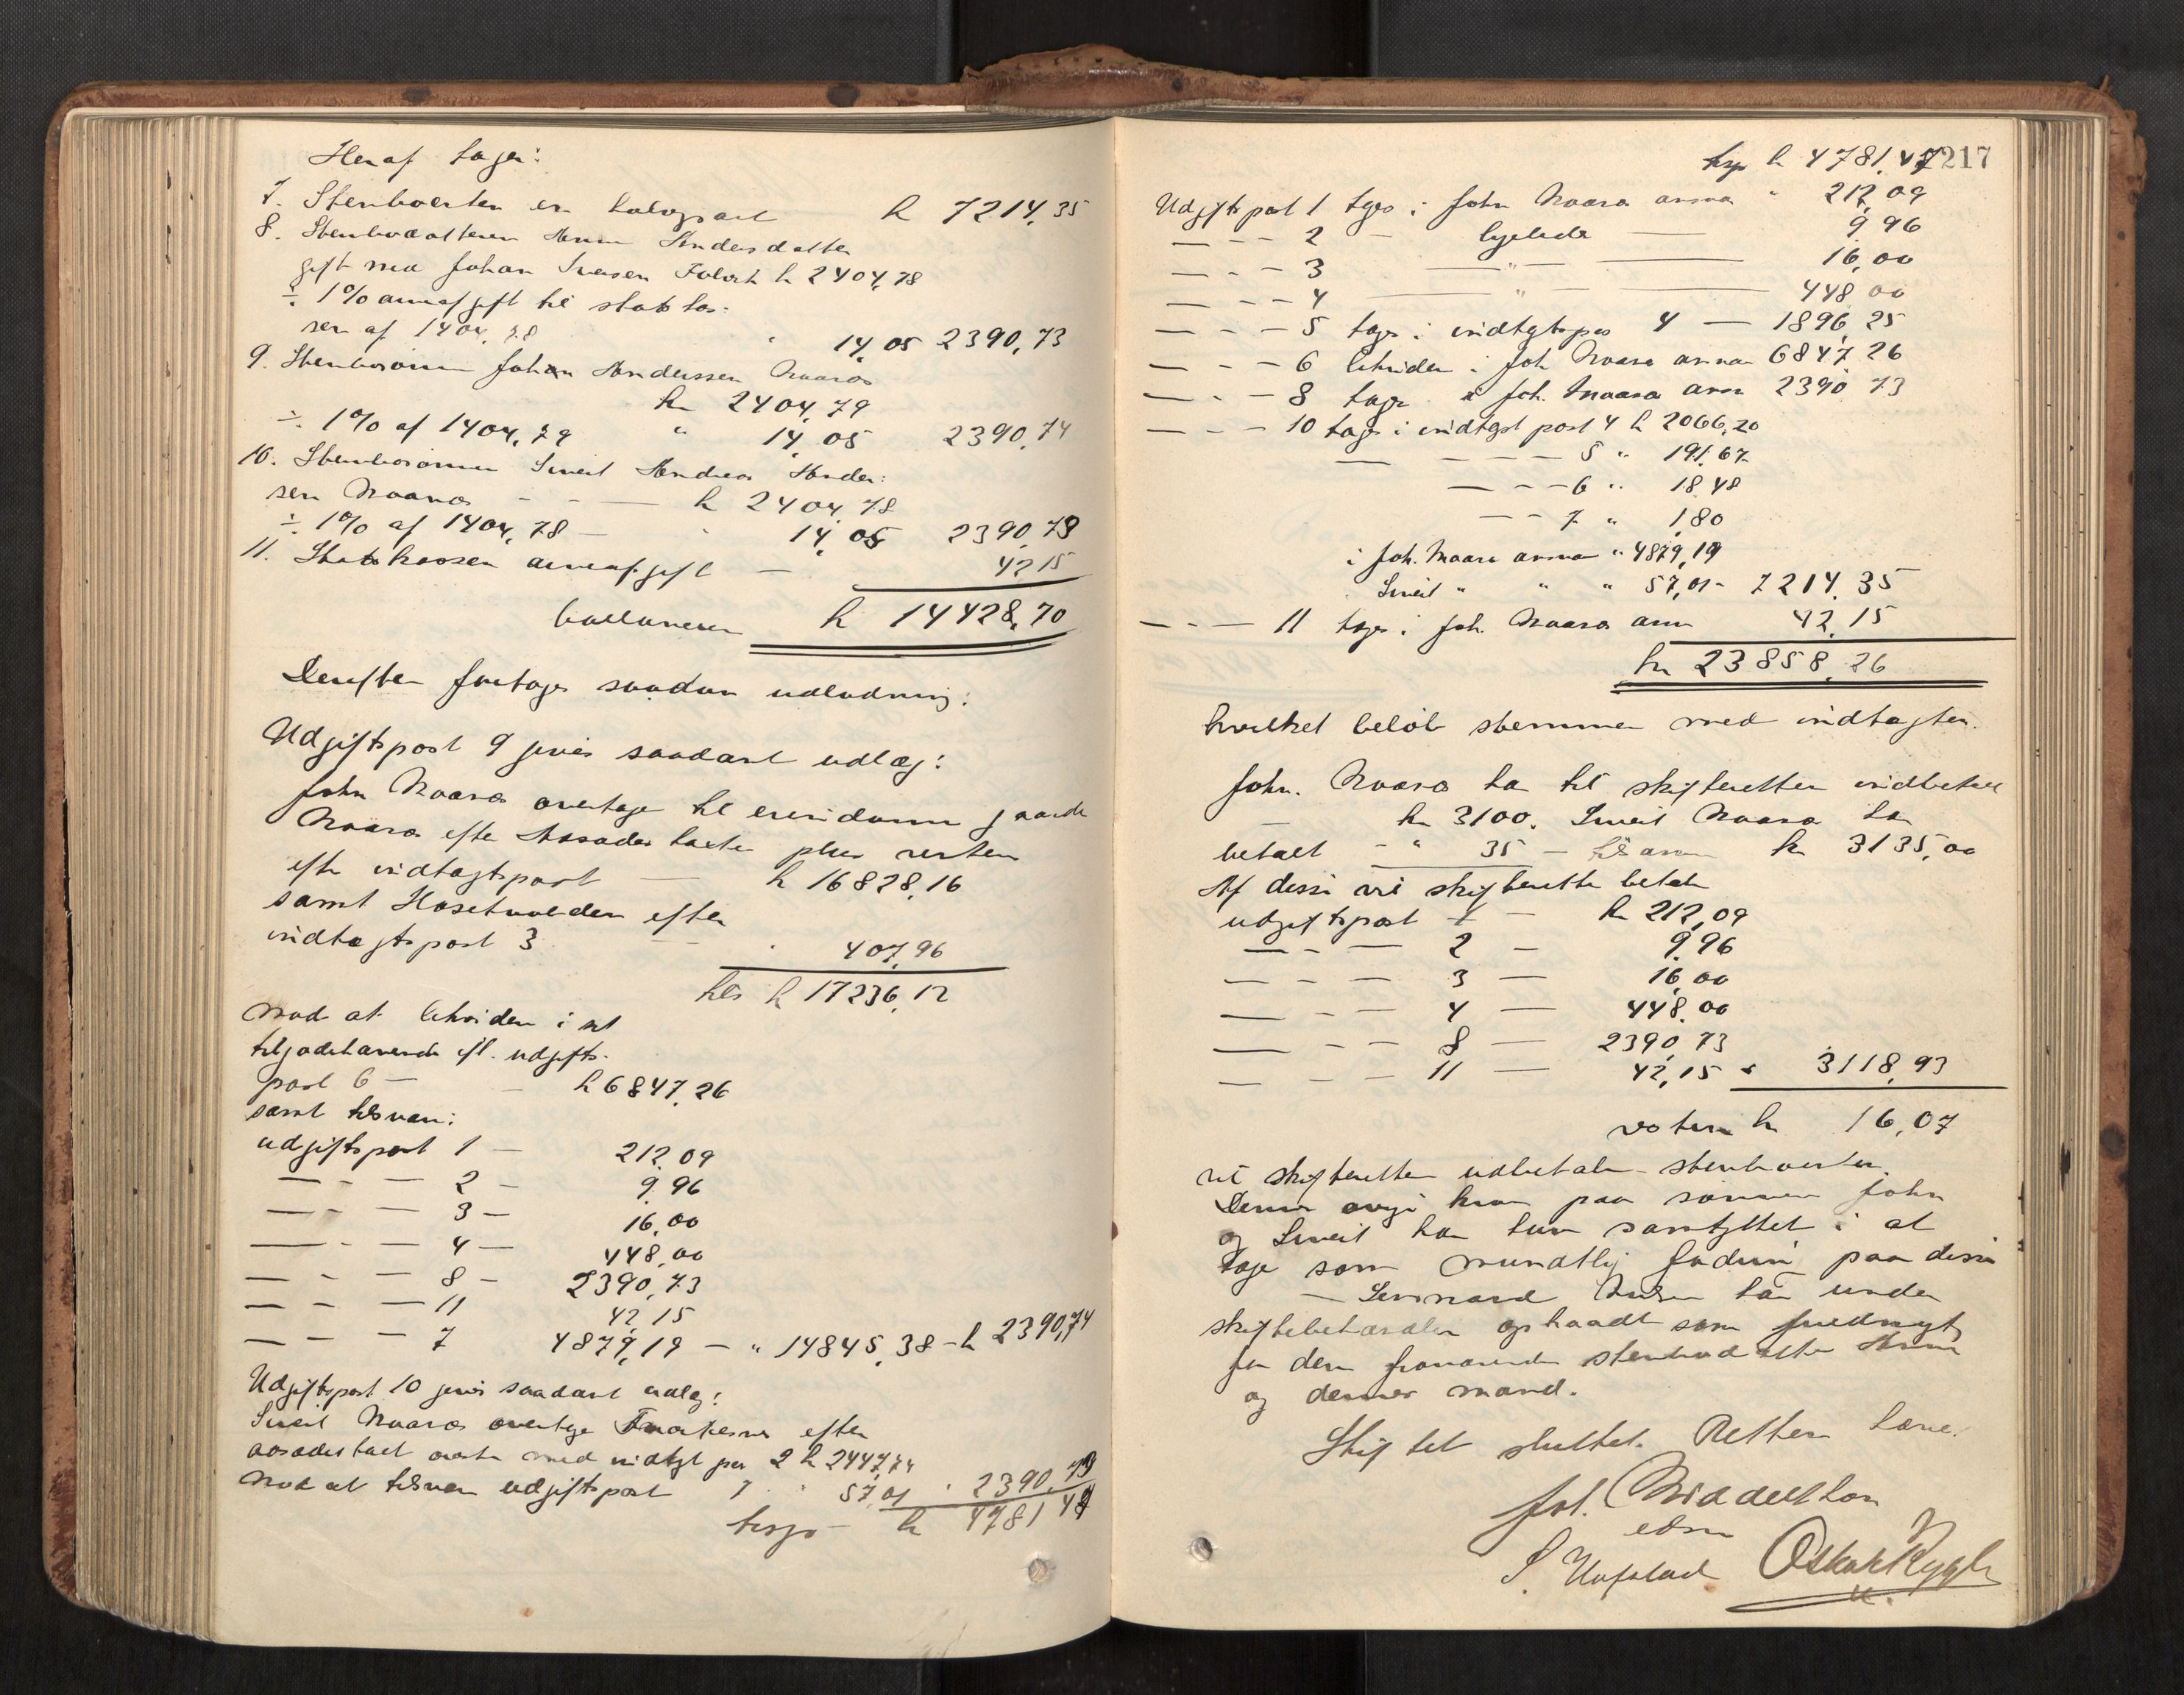 Heraf tager:
7. Stervboenken en halvpart kr 7214,35
8. Stervbodatteren Anna Andersdatter
gift med Johan Iversen kr 2404,78
÷ 1% arveafgift til statskas-
sen af 1404,78 " 14,05 2390,73
9. Stervbosönnen Johan Anderssen Naavar
kr 2404,79
÷ 1% af 1404,79 " 14,05 2390,74
10. Stervbosönnen Sivert Andreas Anders-
sen Naavar - - — kr 2404,78
÷ 1% af 1404,78 — " 14,05 2390,73
11. Statskassen arveafgift — 42,15
ballancerer kr 14428,70
Derefter foretages saadan udlodning:
Udgiftspost 9 gives saadant udlæg:
John Naavar overtage til eiendom gaarden
Naavar efter aasædes taxten plus resten
efter indtægtspost — kr 16828,16
samt efter
indtægtspost 3 — " 407,96
tils kr 17236,12
mod at bekvides i sit
tilgodehavende efl. udgifts-
post 6 — - kr 6847,26
samt tilsvar:
udgiftspost 1 — 212,09
— - — 2 - 9,96
— - — 3 — 16,00
— - — 4 — 448,00
— - — 8 - 2390,73
— - — 11 42,15
— - — 7 4879,19 — " 14845,38 - kr 2390,74
Udgiftspost 10 gives saadant udlæg:
Sivert Naavar overtage efter
aasædestaxt med indtgt po 2 kr 2447,74
mod at tilsvare udgiftspost 7 " 57,01 " 2390,73
transp — kr 4781,47
217
trsp kr 4781,47
Udgiftspost 1 tages i John Naavar ansvar " 212,09
— - - 2 - ligeledes — 9,96
— - - 3 — " — 16,00
— - - 4 — " — 448,00
— - - 5 tages i indtgtspos 4 — 1896,25
— - - 6 i Joh. Naavar ansvar 6847,26
— - - 8 tages i Joh. Naavar ansv 2390,73
— - - 10 tages i indtgst post 4 kr 2066,20
— - - — 5 " 191,67
— - - 6 " 18,48
— - 7 " 1,80
i Joh. Naavar ansvar " 4879,19
Sivert " " " 57,01 - 7214,35
— - — 11 tages i Joh. Naavar ansv 42,15
kr 23858,26
hvilket belöb stemmer med indtægten.
John. Naavar har til skifteretten indbetalt
— kr 3100. Sivert Naavar har
betalt - " 35 — tilsam kr 3135,00
Af disse vil skifteretten betale
udgiftspost 1 — kr 212,09
— - — 2 — 9,96
— - — 3 — 16,00
— - — 4 — 448,00
— - — 8 — 2390,73
— - — 11 — 42,15 " 3118,93
resten kr 16,07
vil skifteretten udbetale stervboenken.
Dennes krav paa sönnerne John
og Sivert har hun samtykket i at
tage som mundtlig fordring paa disse
— Lensmand har under
skiftebehandlen optraadt som fuldmægtig
for den fraværende stervbodatter Anna
og dennes mand.
Skiftet sluttet. Retten hævet.
Joh. Middelthon
edsv
S. Hofstad Oskar Rygh